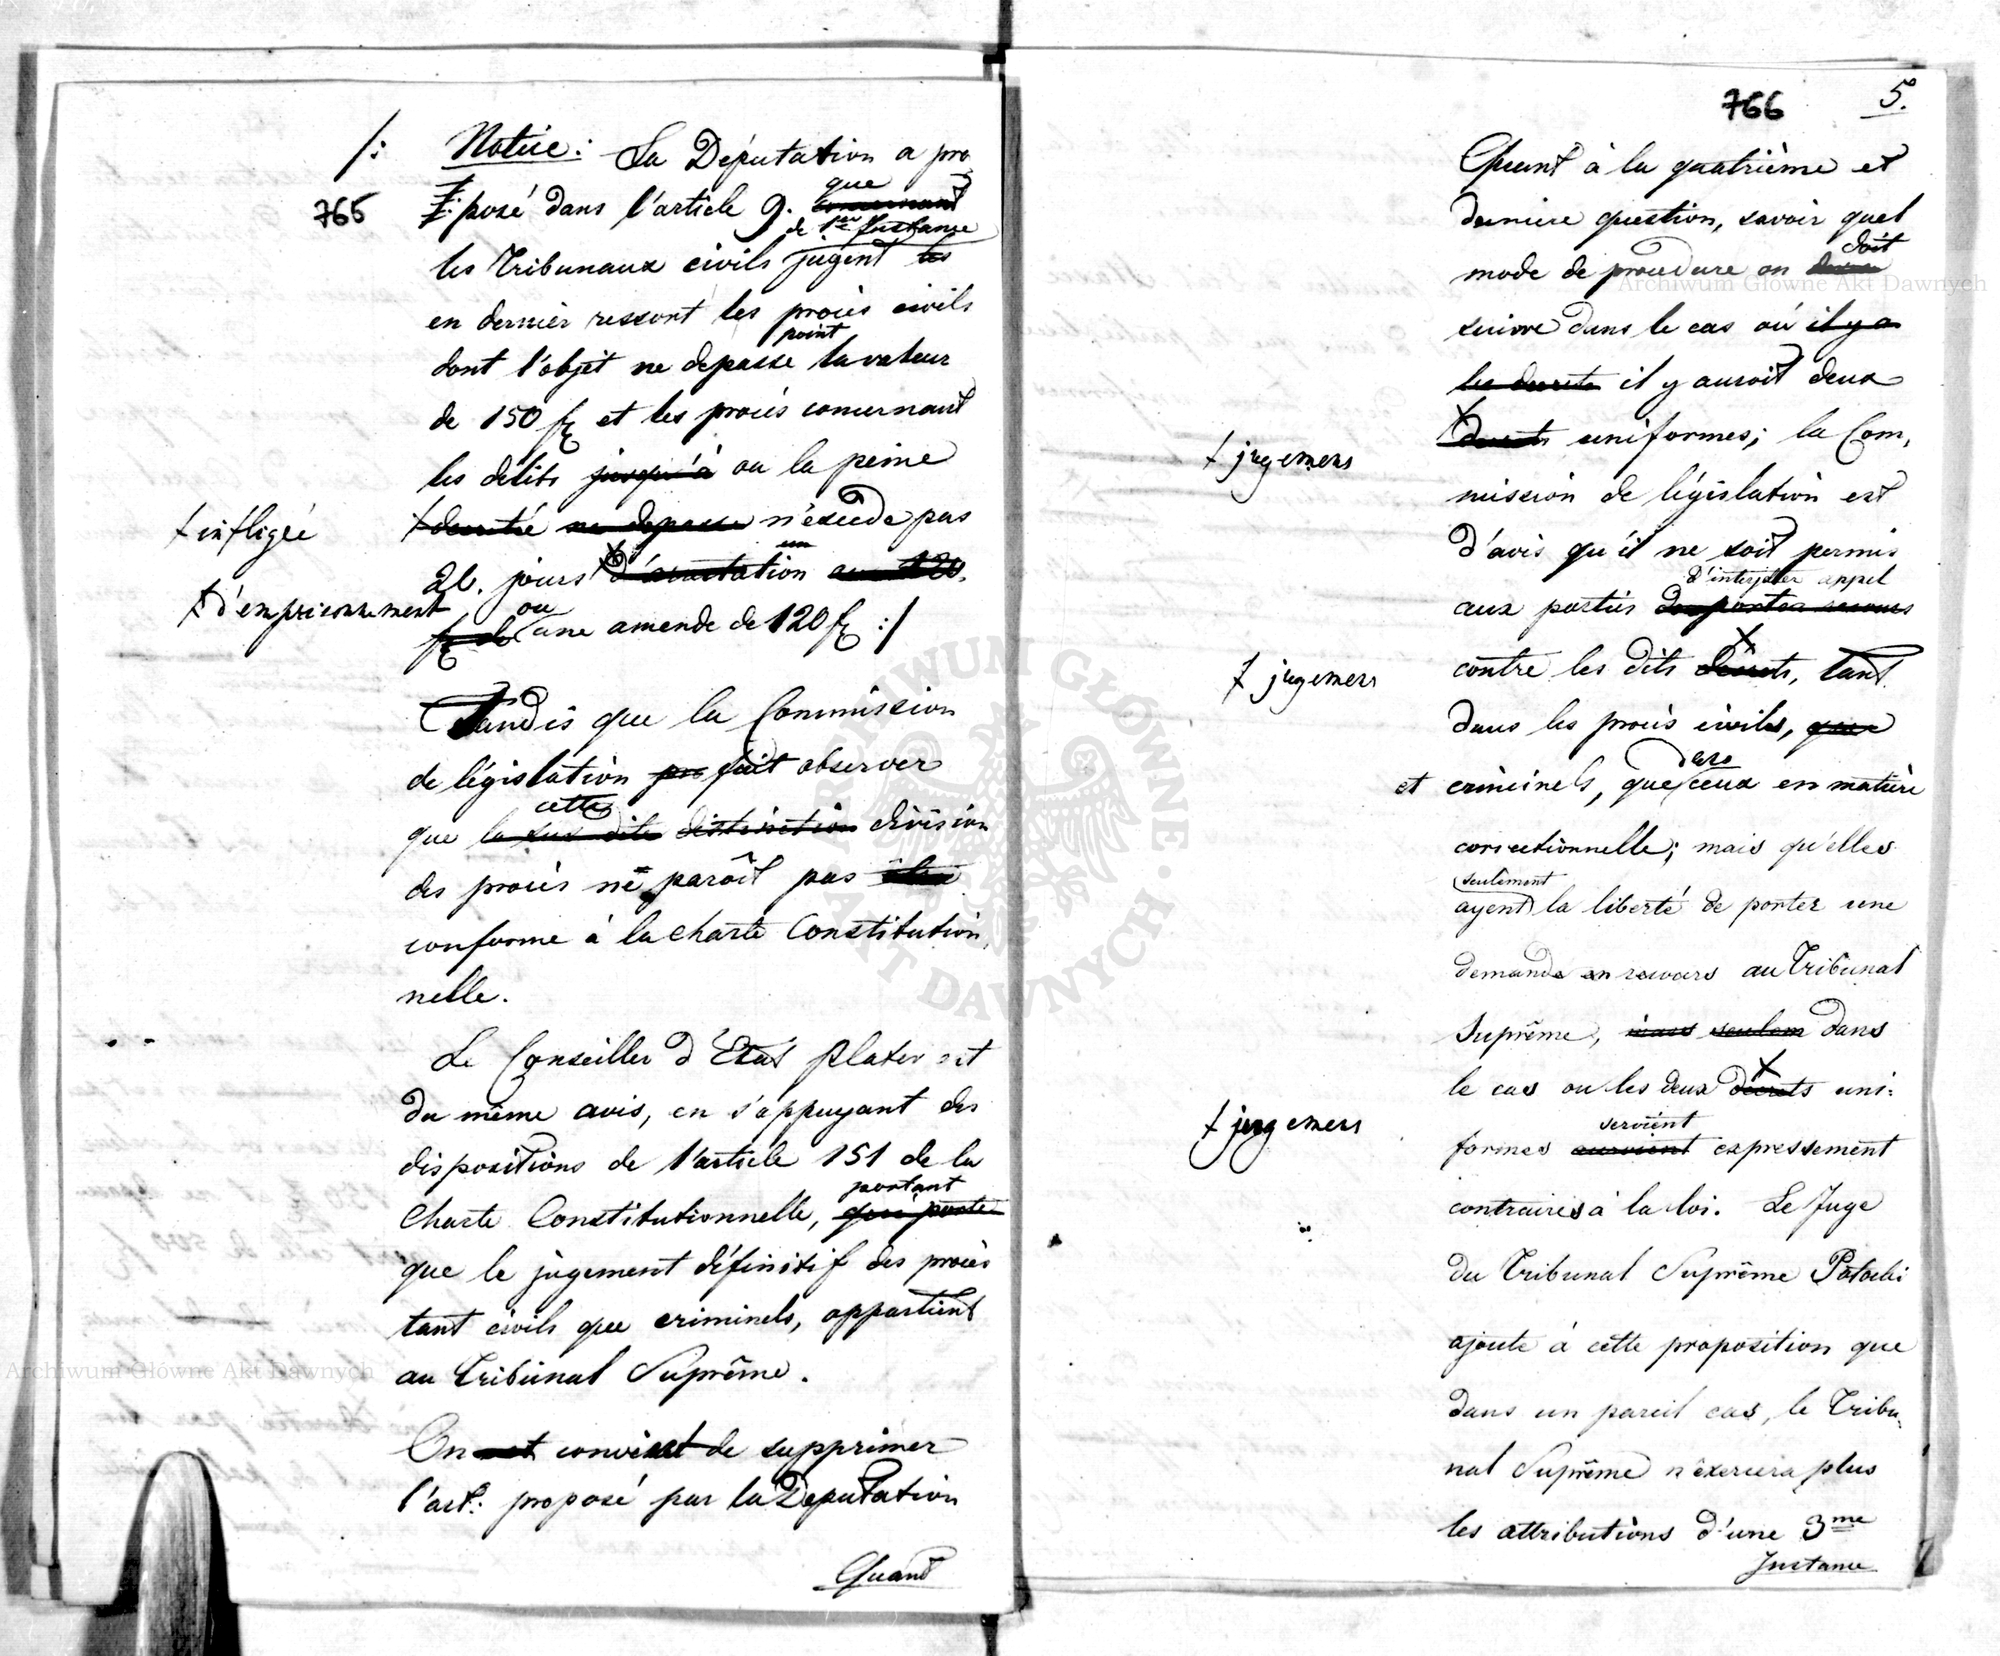 /: Notice: La Députation a pro
765
posé dans l'article 9. que concernant
de 1ere Instance
les Tribunaux civils jugent les
en dernier ressort les procès civils
point
dont l'objet ne depasse la valeur
de 150 fr et les procès concernant
les délits jusqu'à ou la peine
† infligée
† decretée ne depasse n'éxcède pas
20. jours † d'arrestation
† d'emprisonnement
ou
une amende de 120 fr :/
Tandis que la Commission
de législation fait observer
cette
que la sus dite distinction division
des procès ne parôit pas
conforme à la charte Constitution,
nelle.
Le Conseiller d'Etat Plater est
du même avis, en s'appuyant des
dispositions de l'article 151 de la
portant
Charte Constitutionnelle, qui porte
que le jugement définitif des procès
tant civils que criminels, appartient
au Tribunal Suprême.
On est convient de supprimer
l'art: proposé par la Députation
Quant
766 5.
Quant à la quatrième et
derniere question, savoir quel
doit
mode de procedure on
suivre dans le cas où il y a
les decrets il y auroit deux
† jugemens
decrets uniformes; la Com,
mission de législation est
d'avis qu'il ne soit permis
d'interjetter appel
aux parties de porter recours
† jugemens
contre les dits décrets, tant
dans les procès civils, que
dans
et criminels, que ceux en matière
correctionnelle; mais qu'elles
seulement
ayent la liberté de porter une
demande en recours au Tribunal
Suprême, mais seulem dans
le cas ou les deux décrets uni:
† jugemens
seroient
formes auroient expressement
contraires à la loi. Le Juge
du Tribunal Suprême Potocki
ajoute à cette proposition que
dans un pareil cas, le Tribu,
nal Suprême n'éxercera plus
les attributions d'une 3me
Instance
Archiwum Główne Akt Dawnych
Archiwum Główne Akt Dawnych
ARCHIWUM GŁÓWNE AKT DAWNYCH